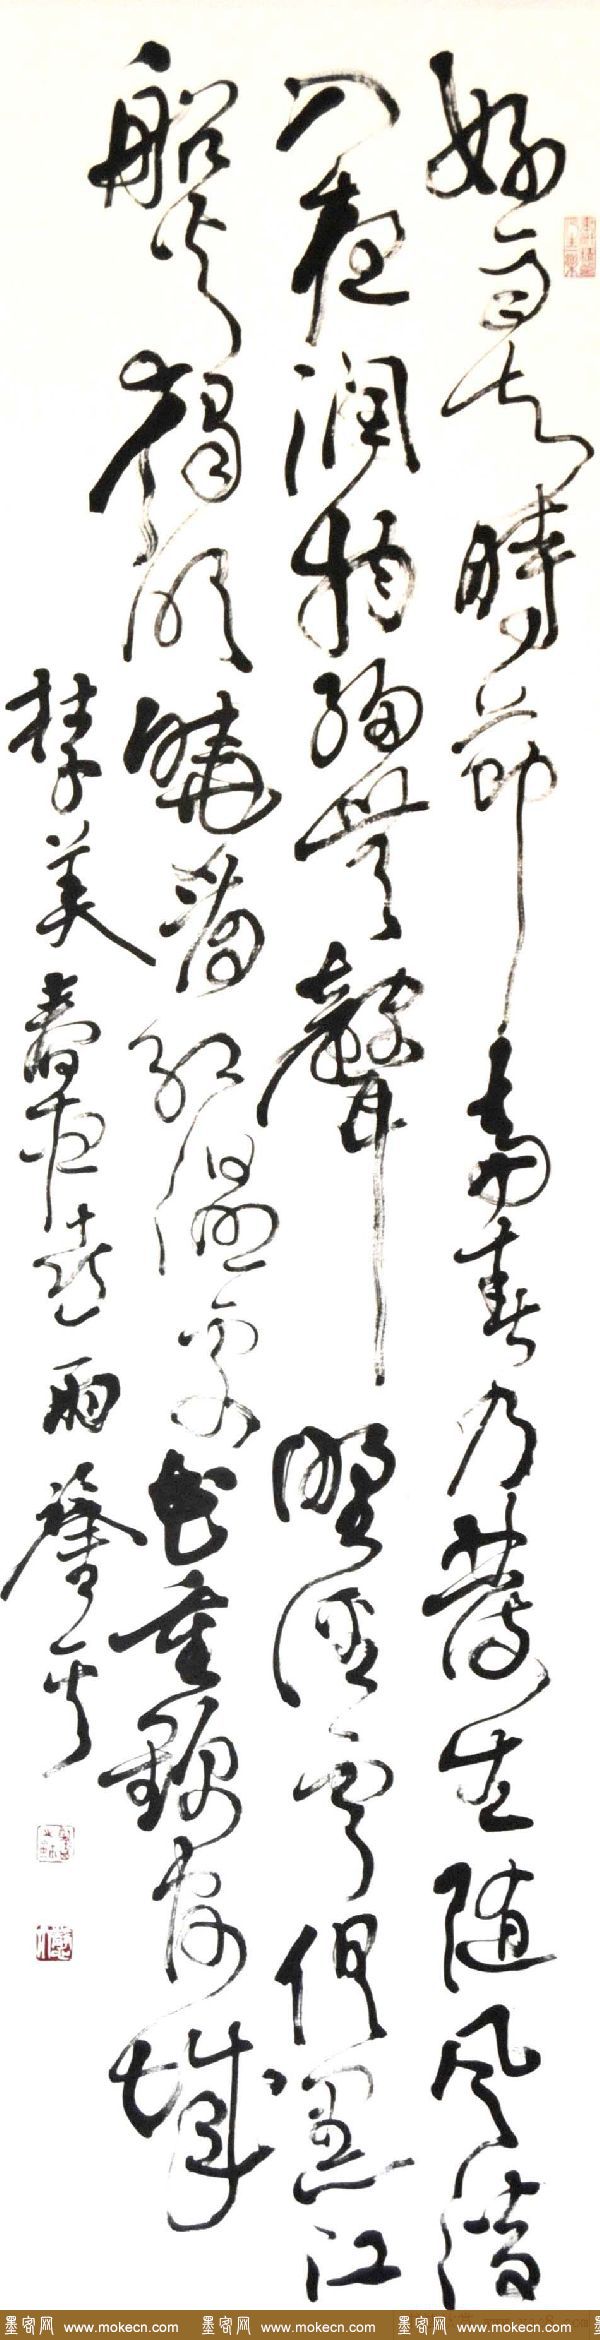 好雨知時節當春乃發生随風潛
入夜润物細無聲野徑雲俱黑江
船火獨明曉看紅濕處花重錦官城
杜子美春夜喜雨
墨客网 www.mokecn.com 墨客网 www.mokecn.com 墨客网 www.mokecn.com